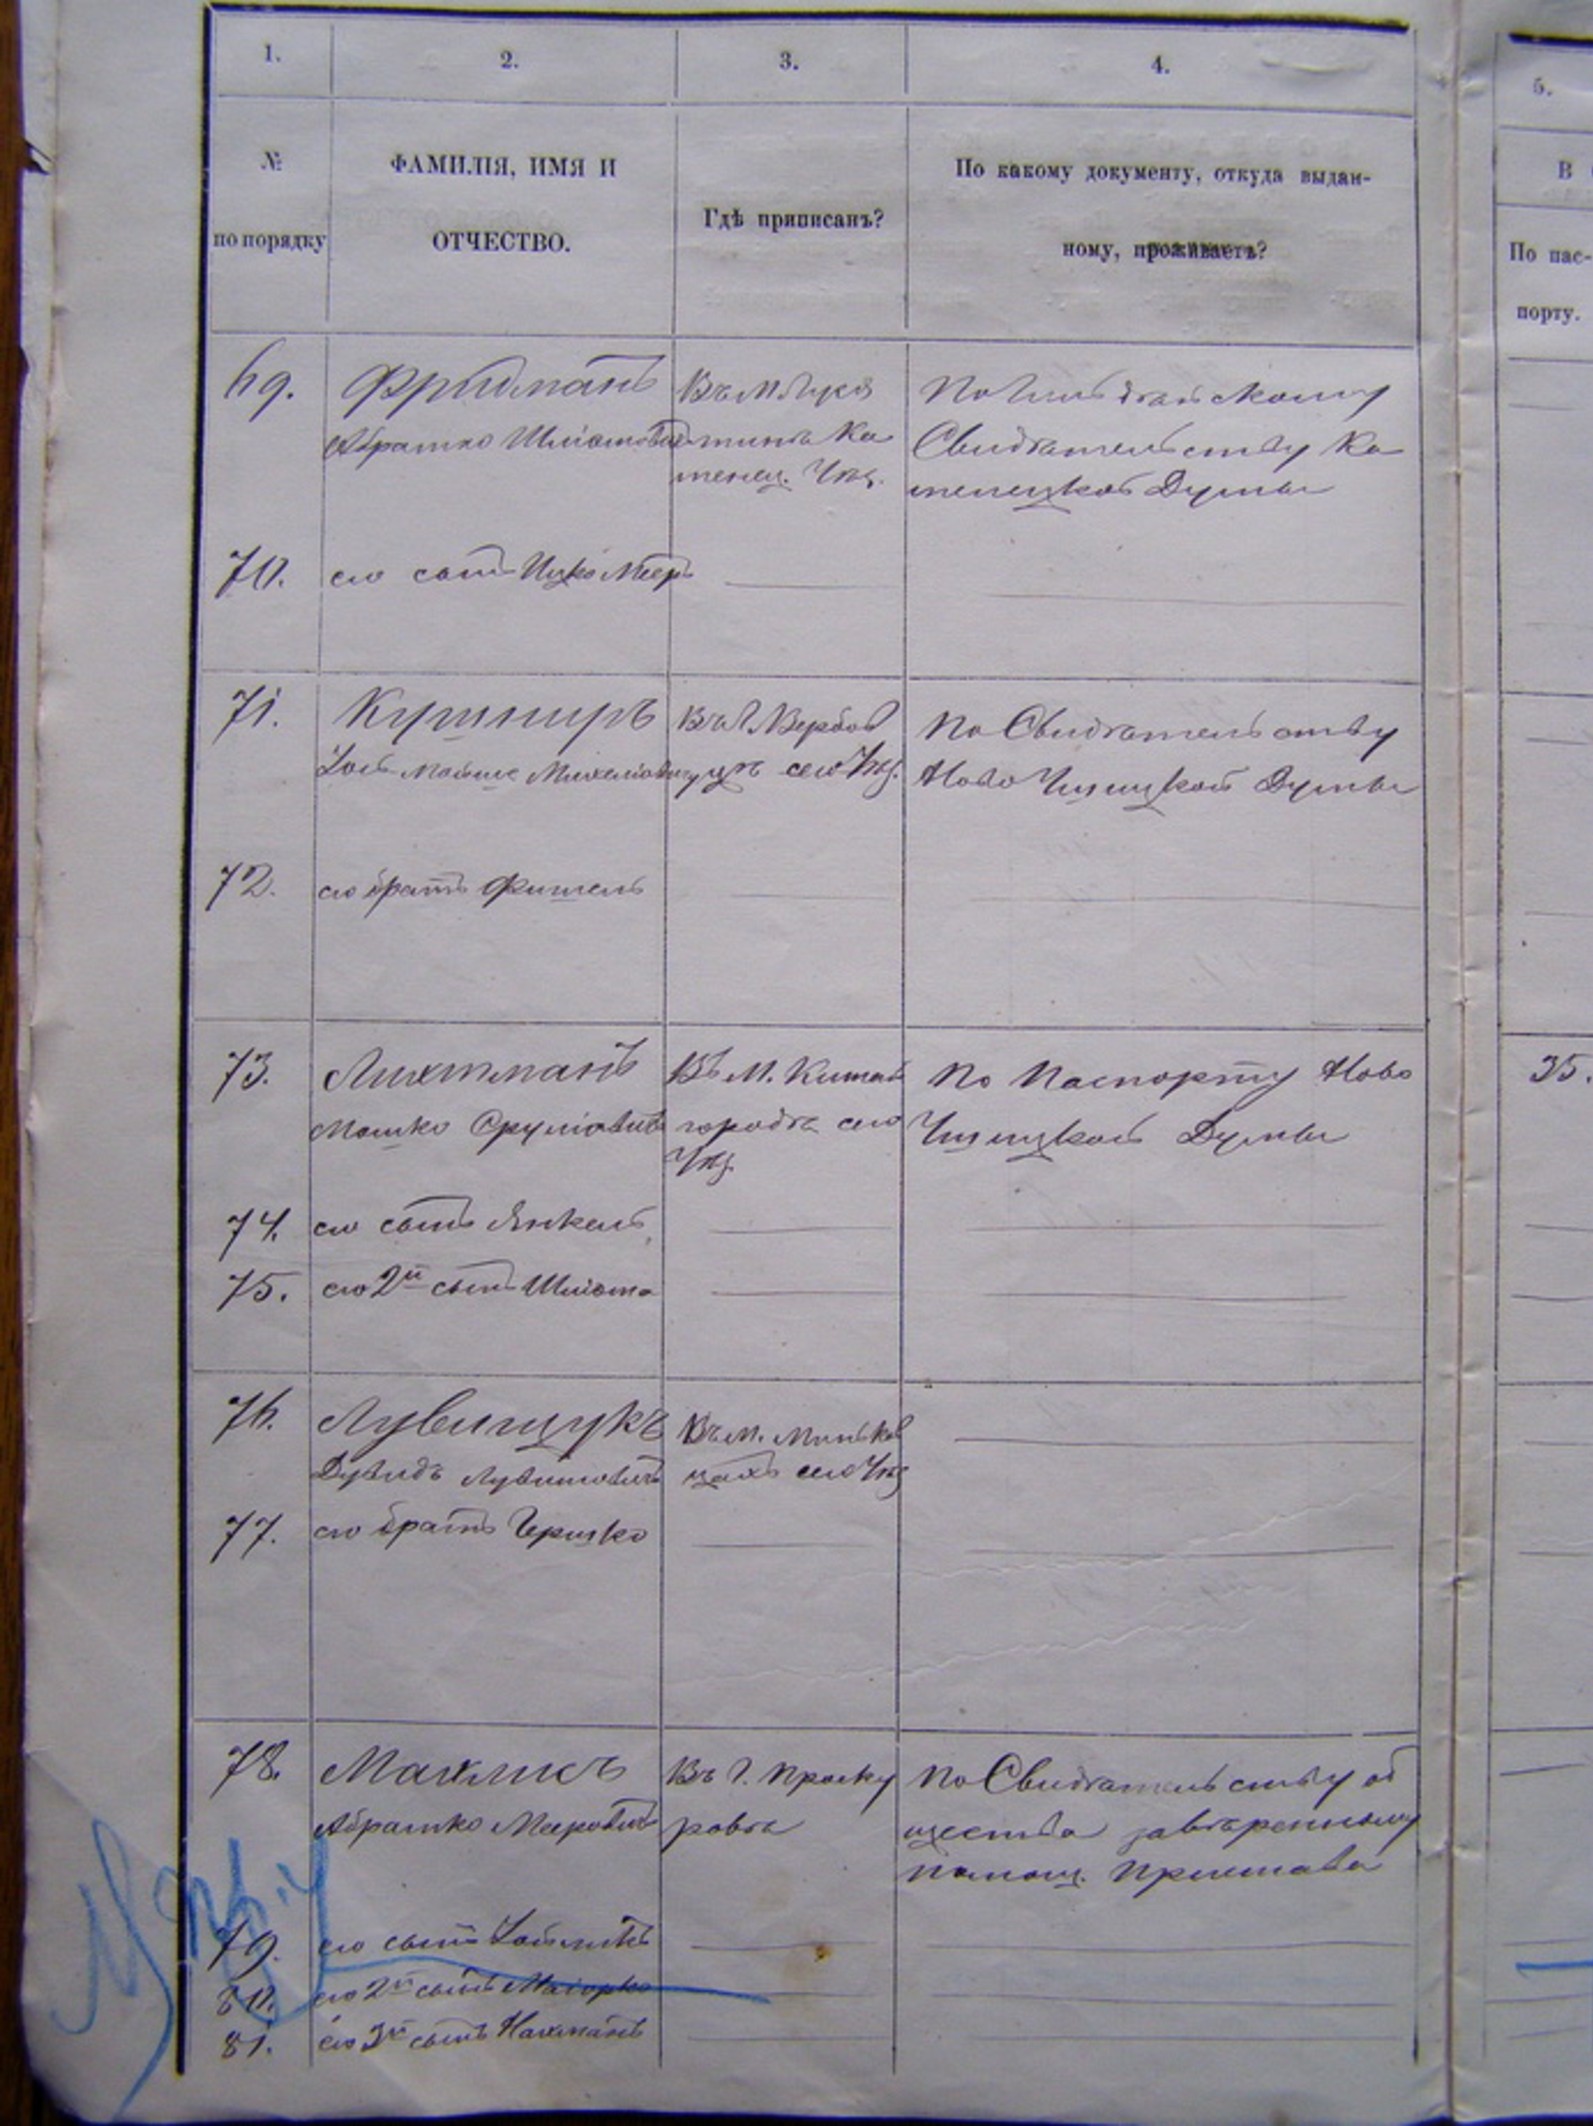 1. 2. 3. 4. 5.
№ по порядку
ФАМИЛІЯ, ИМЯ И
ОТЧЕСТВО.
Гдѣ приписанъ?
По какому документу, откуда выдан-
ному, проживаетъ?
В
По пас-
порту.
69. Фридманъ
Абрамко Шліомовичъ
Въ М.
Ка
менец. Уѣз.
По
Свидѣтельству Ка
менецкой Думы
70. его сынъ Ицко Мееръ
71. Кушниръ
Мойше
Въ Г. Вербов
цѣ сего Уѣз.
По Свидѣтельству
Ново Ушицкой Думы
72. его братъ Фишель
73. Лихтманъ
Мошко Срулiовичъ
Въ М. Китай
городѣ сего
Уѣз.
По Паспорту Ново
Ушицкой Думы
35.
74. его сынъ Янкель
75. его 2й сынъ Шліома
76. Лувищукъ
Дувидъ
Въ М. Миньков
цахъ сего Уѣз
77. его братъ Гершко
78. Махлисъ
Абрамко Мееровичъ
Въ Г. Проску
ровѣ
По Свидѣтельству об
щества завѣренному
Помощ. Пристава
79. его сынъ
80. его 2й сынъ Маіорко
81. его 3й сынъ Нахманъ